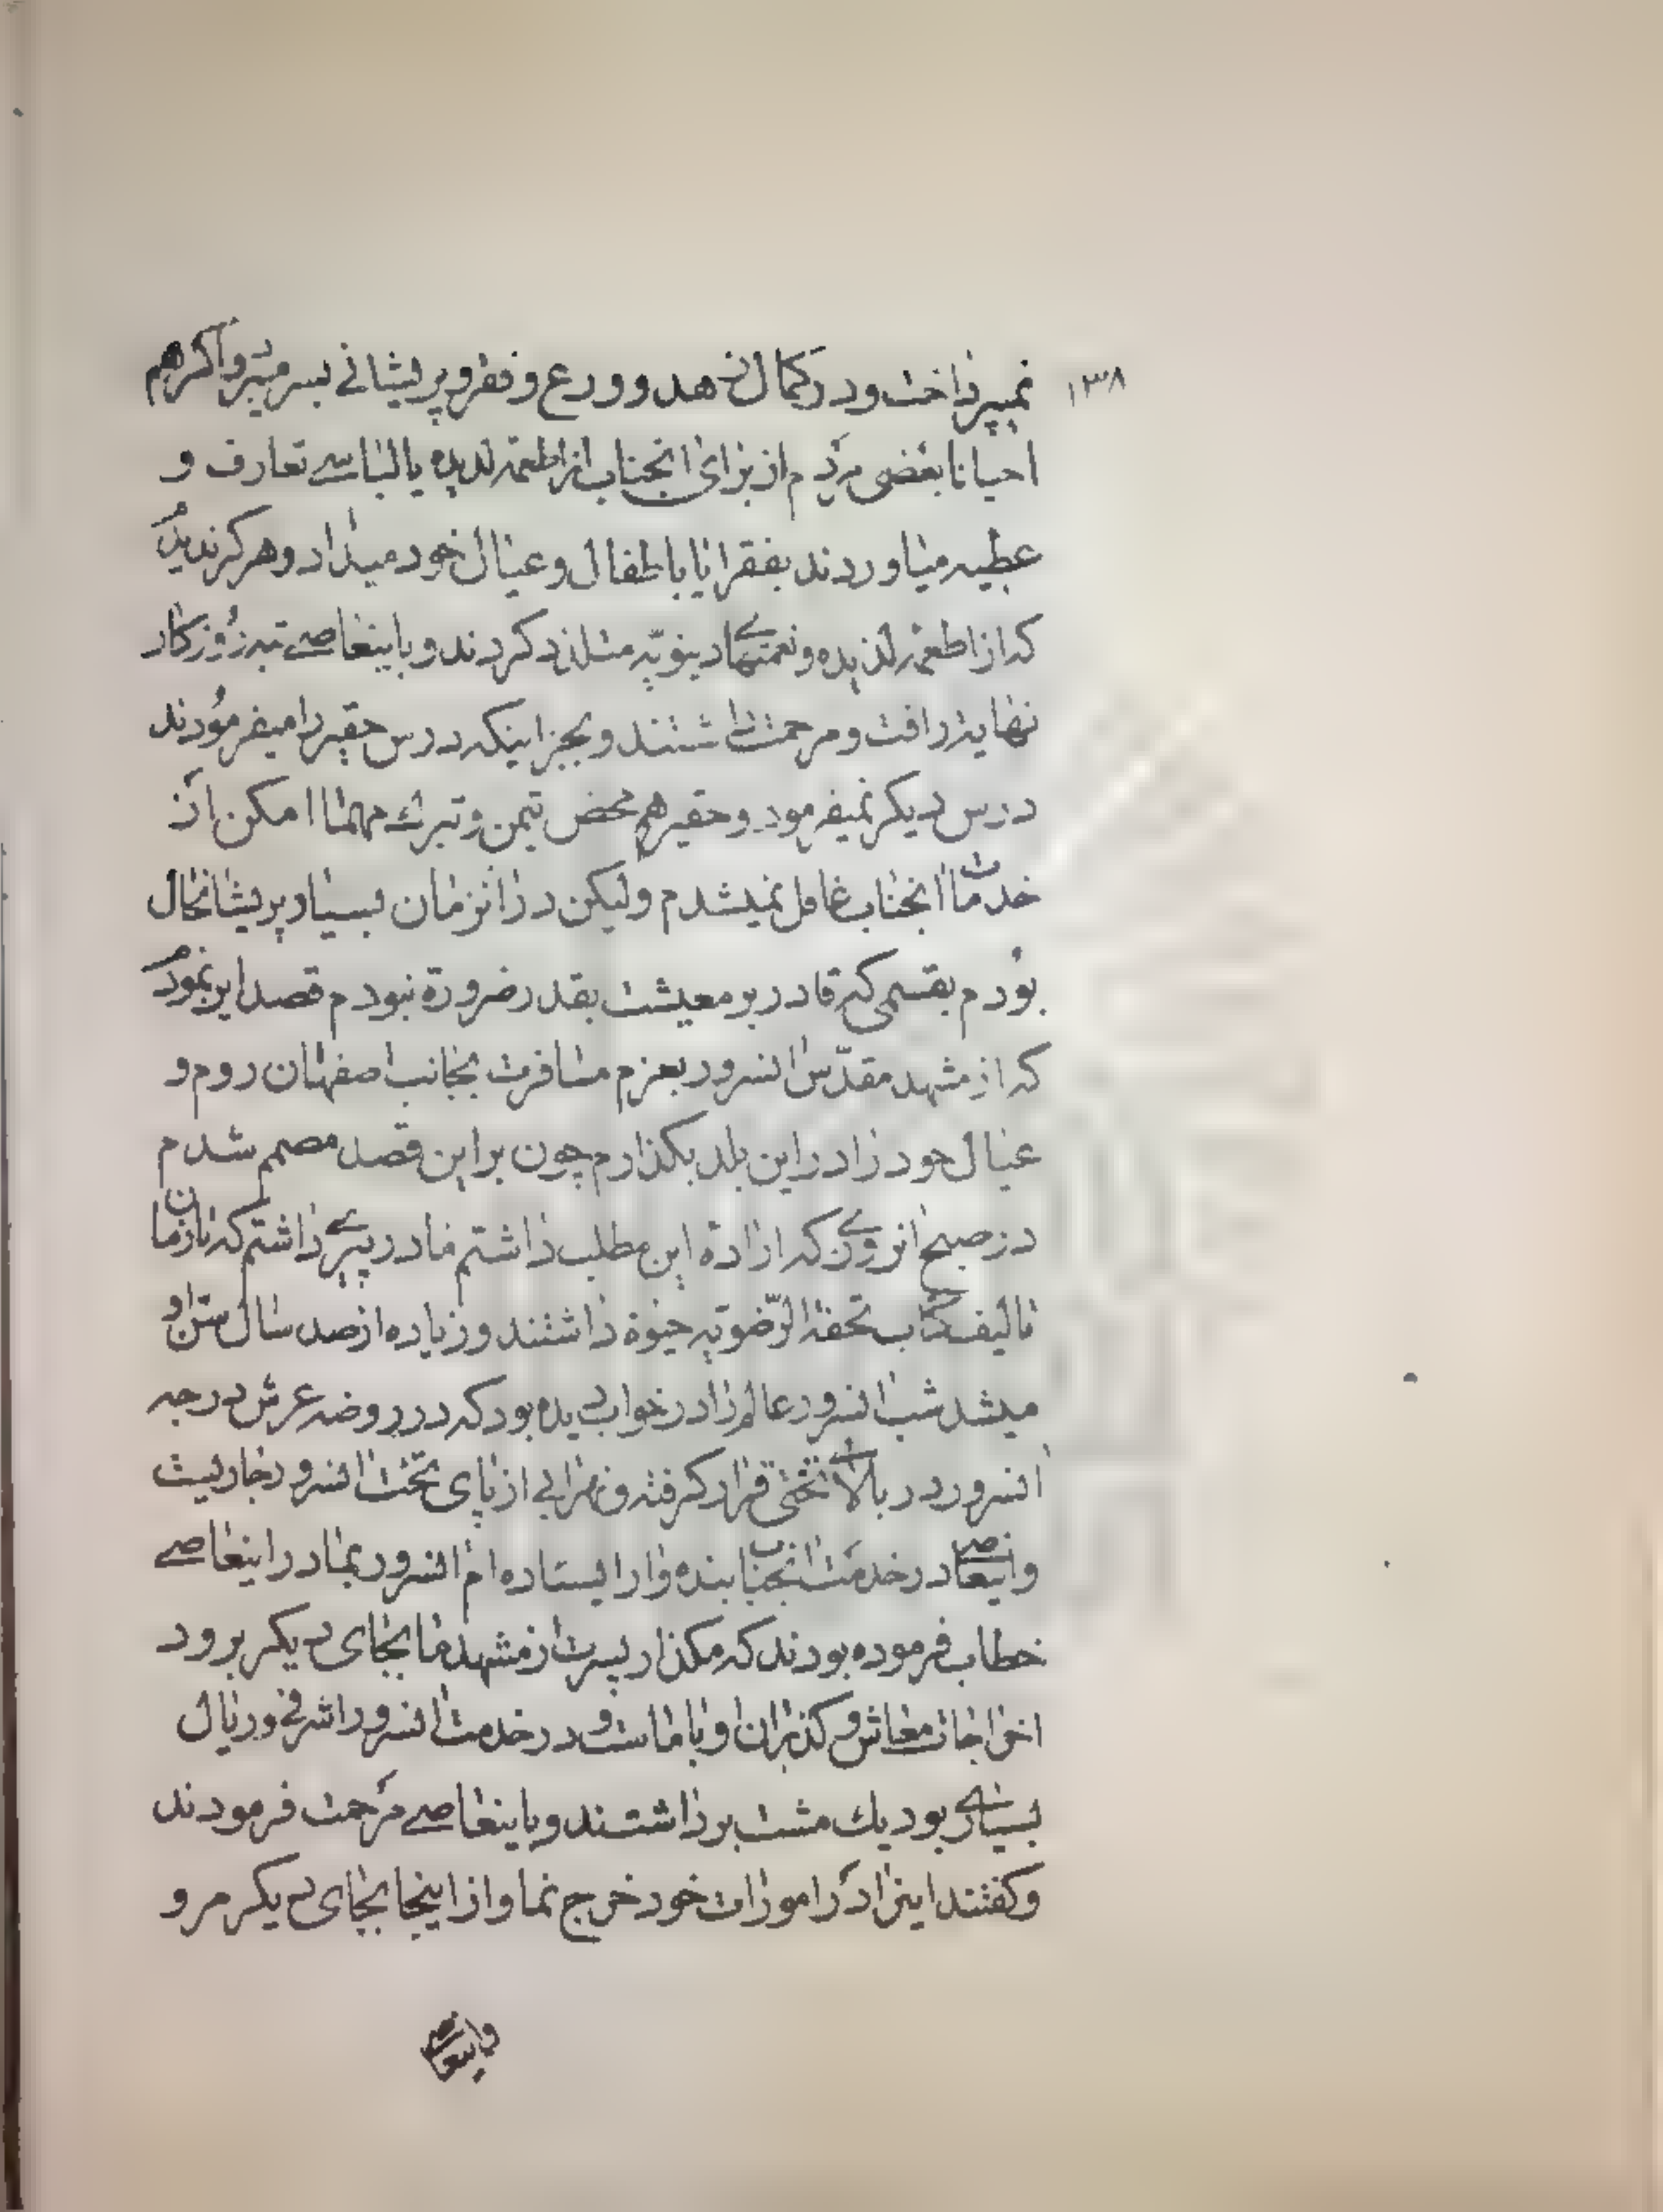 ۱۳۸
نمیپرداخت و در کمال زهد و ورع و فقر و پریشانی بسر میبرد و اگر هم
احیانا بعضی مردم از برای انجناب از اطعمه لذیده یا لباسی تعارف و
عطیه میاوردند بفقرا یا باطفال و عیال خود میداد و هرگز ندیدم
که از اطعمه لذیذه و نعمتهای دینویّه متلذذ کردند و باینعاصی تیره روزکار
نهایة رافت و مرحمت داشتند و بجز اینکه درس حقیر را میفرمودند
درس دیکر نمیفرمود و حقیر هم محض تیمن و تبرک مهما امکن از
خدمات انجناب غافل نمیشدم ولیکن در انزمان بسیار پریشانحال
بودم بقسمی که قادر بر معیشت بقدر ضرورة نبودم قصد این نمودم
که از مشهد مقدّس انسرور بعزم مسافرت بجانب اصفهان روم و
عیال خود را در این بلد بگذارم چون بر این قصد مصمم شدم
در صبح انروزی که ارادهٔ این مطلب داشتم مادر پیری داشتم که تا زمان
تالیف کتاب تحفة الرّضویّه حیوة داشتند و زیاده از صد سال سن او
میشد شب انسرور عالم را در خواب دیده بود که در روضه عرش درجه
انسرور در بالای تختی قرار کرفته و نهرابی از پای تخت انسرور جاریست
و اینعاصی در خدمت انجناب بنده وار ایستاده ام انسرور بمادر اینعاصی
خطاب فرموده بودند که مکذار پسرت از مشهد ما بجای دیکر برود
اخراجات معاش و کذران او با ماست و در خدمت انسرور اشرفی و ریال
بسیاری بود یک مشت برداشتند و باینعاصی مرحمت فرمودند
و کفتند اینرا در امورات خود خرج نما و از اینجا بجای دیکر مرو
و اینعاصی